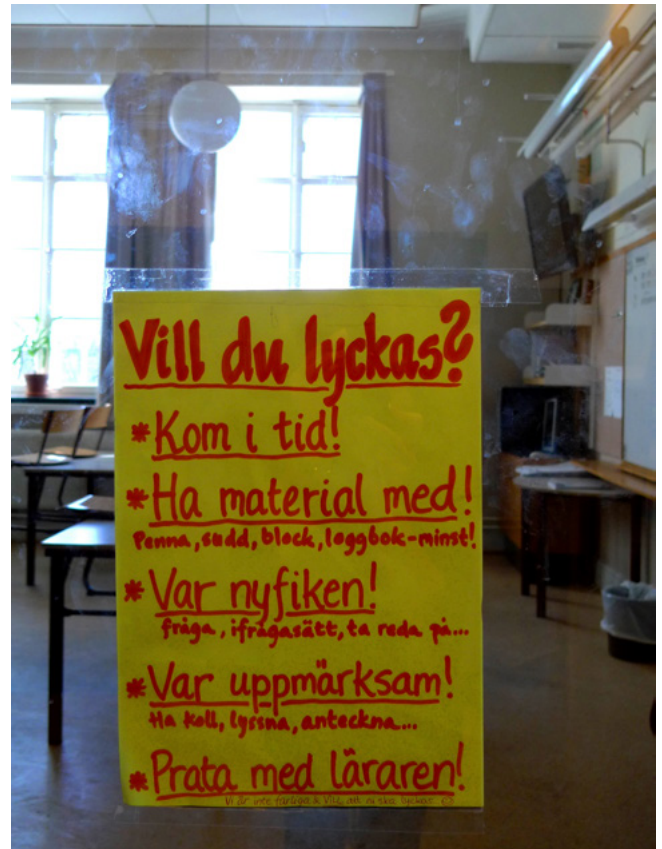 Vill du lyckas?
*Kom i tid!
*Ha material med!
Penna, sudd, block, loggbok-minst!
*Var nyfiken!
fråga, ifrågasätt, ta reda på...
*Var uppmärksam!
Ha koll, lyssna, anteckna...
*Prata med läraren!
Vi är inte farliga & vill att ni ska lyckas ☺